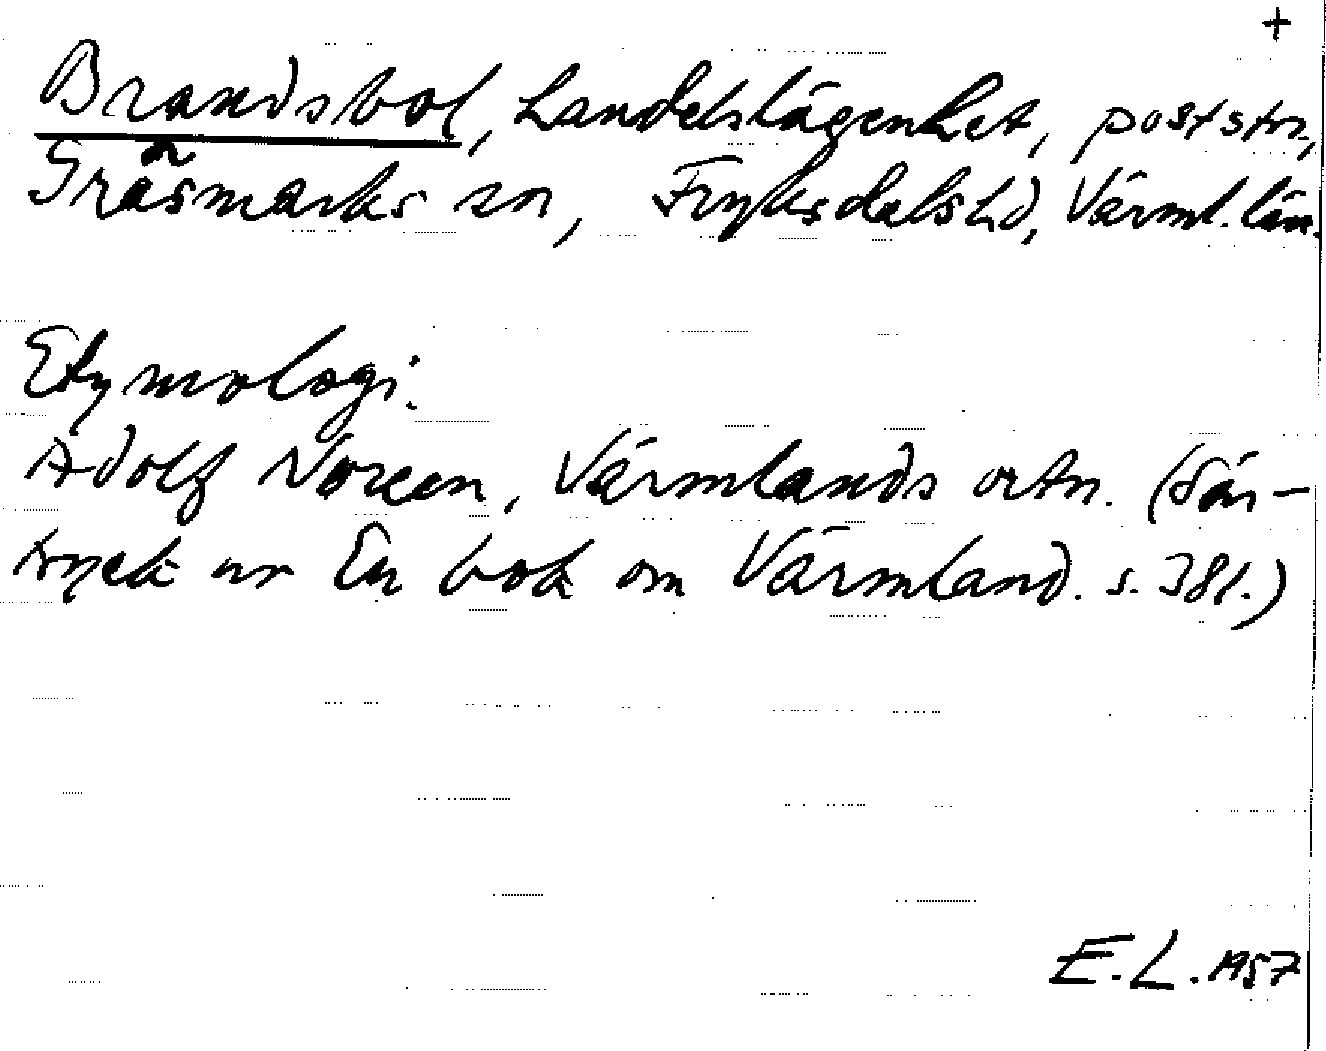 +
Brandsbol, handelslägenhet, poststn,
Gräsmarks sn, Fryksdals hd, Värml. län.
Etymologi.
Adolf Noreen, Värmlands ortn. (Sär-
tryck ur En bok om Värmland. s. 381.)
E.L. 1957